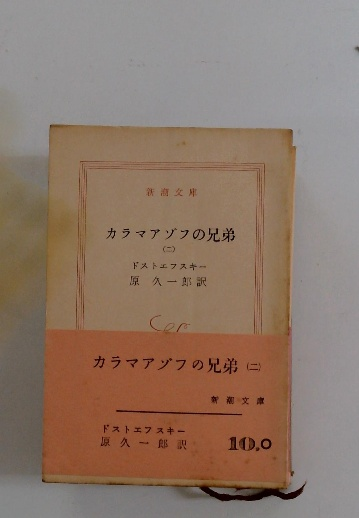 新潮文庫
カラマアゾフの兄弟
(二)
ドストエフスキー
原久一郎訳
カラマアゾフの兄弟 (二)
新潮文庫
ドストエフスキー
原久一郎訳
10.0